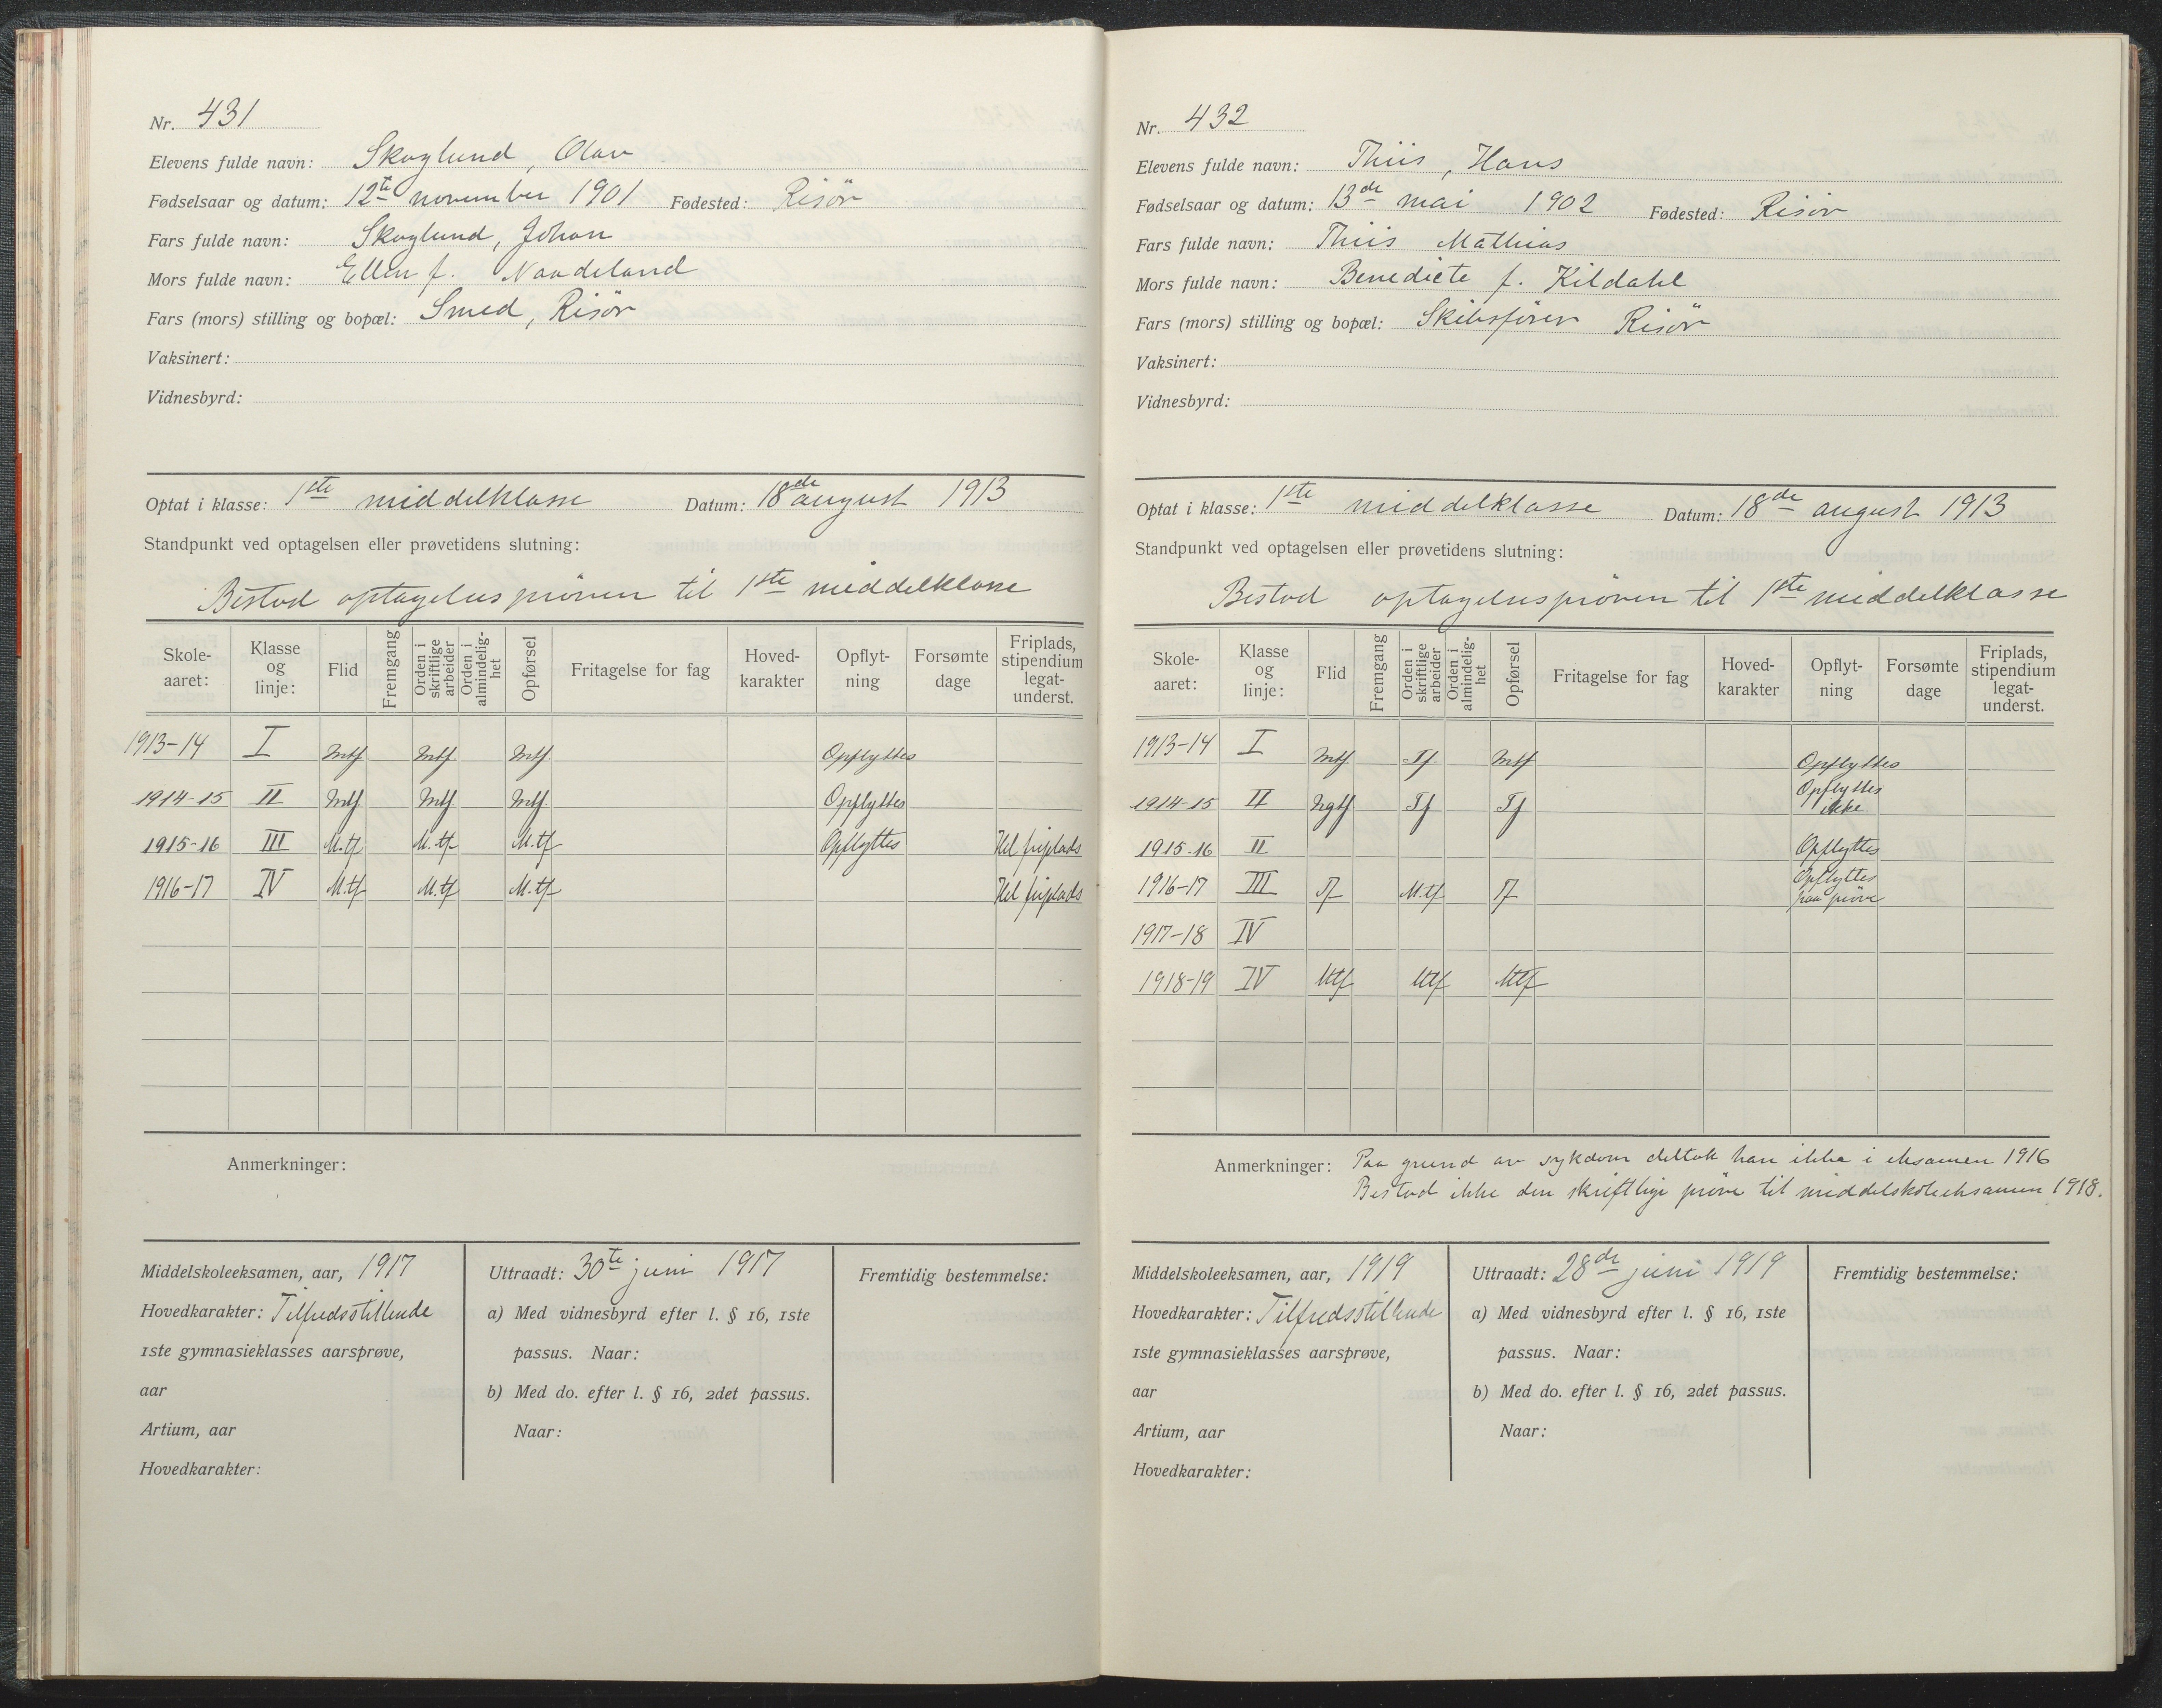 Nr. 431
Elevens fulde navn: Skoglund, Olav
Fødselsaar og datum: 12te november 1901 Fødested: Risör
Fars fulde navn: Skoglund, Johan
Mors fulde navn: Ellen f. Naadeland
Fars (mors) stilling og bopæl: Smed, Risör
Vaksinert:
Vidnesbyrd:
Optat i klasse: 1ste middelklasse Datum: 18de august 1913
Standpunkt ved optagelsen eller prøvetidens slutning:
Bestod optagelsespröven til 1ste middelklasse
Skole-aaret: Klasse og linje: Flid Fremgang Orden i skriftlige arbeider Orden i almindelig-het Opførsel Fritagelse for fag Hoved-karakter Opflyt-ning Forsømte dage Friplads, stipendium legat-underst.
1913-14 I Mtf Mtf Mtf Opflyttes
1914-15 II Mtf Mtf Mtf Opflyttes
1915-16 III M.tf M.tf M.tf Opflyttes Hel friplads
1916-17 IV M.tf M.tf M.tf Hel friplads
Anmerkninger:
Middelskoleeksamen, aar, 1917
Hovedkarakter: Tilfredsstillende
1ste gymnasieklasses aarsprøve,
aar
Artium, aar
Hovedkarakter:
Uttraadt: 30te juni 1917
a) Med vidnesbyrd efter l. § 16, 1ste
passus. Naar:
b) Med do. efter l. § 16, 2det passus.
Naar:
Fremtidig bestemmelse:
Nr. 432
Elevens fulde navn: Thiis, Hans
Fødselsaar og datum: 13de mai 1902 Fødested: Risör
Fars fulde navn: Thiis Mathias
Mors fulde navn: Benedicte f. Kildahl
Fars (mors) stilling og bopæl: Skibsförer Risör
Vaksinert:
Vidnesbyrd:
Optat i klasse: 1ste middelklasse Datum: 18de august 1913
Standpunkt ved optagelsen eller prøvetidens slutning:
Bestod optagelsespröven til 1ste middelklasse
Skole-aaret: Klasse og linje: Flid Fremgang Orden i skriftlige arbeider Orden i almindelig-het Opførsel Fritagelse for fag Hoved-karakter Opflyt-ning Forsømte dage Friplads, stipendium legat-underst.
1913-14 I Mtf Tf. Mtf Opflyttes
1914-15 II Ngtf Tf Tf Opflyttes ikke
1915-16 II Opflyttes
1916-17 III Tf M.tf Tf Opflyttes paa pröve
1917-18 IV
1918-19 IV Mtf Mtf Mtf
Anmerkninger: Paa grund av sykdom deltok han ikke i eksamen 1916
Bestod ikke den skriftlige pröve til middelskoleeksamen 1918.
Middelskoleeksamen, aar, 1919
Hovedkarakter: Tilfredsstillende
1ste gymnasieklasses aarsprøve,
aar
Artium, aar
Hovedkarakter:
Uttraadt: 28de juni 1919
a) Med vidnesbyrd efter l. § 16, 1ste
passus. Naar:
b) Med do. efter l. § 16, 2det passus.
Naar:
Fremtidig bestemmelse: